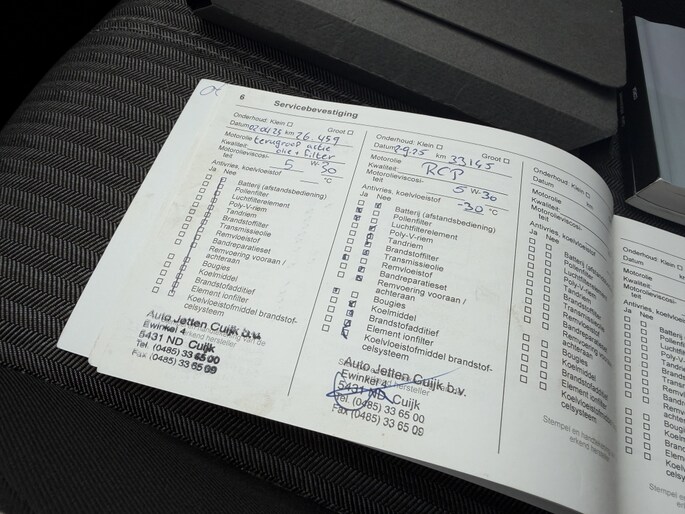 6 Servicebevestiging
Onderhoud: Klein Groot
Datum km 26.459
Motorolie terugroep actie
Kwaliteit: olie + filter
Motorolieviscosi- 5 W- 30
teit
Antivries, koelvloeistof °C
Ja Nee
Batterij (afstandsbediening)
Pollenfilter
Luchtfilterelement
Poly-V-riem
Tandriem
Brandstoffilter
Transmissieolie
Remvloeistof
Bandreparatieset
Remvoering vooraan /
achteraan
Bougies
Koelmiddel
Brandstofadditief
Element ionfilter
Koelvloeistofmiddel brandstof-
celsysteem
Auto Jetten Cuijk b.v.
Ewinkel 4
5431 ND Cuijk
Tel. (0485) 33 65 00
Fax (0485) 33 65 09
Onderhoud: Klein Groot
Datum km
Motorolie
Kwaliteit: RCP
Motorolieviscosi- 5 W- 30
teit
Antivries, koelvloeistof -30 °C
Ja Nee
Batterij (afstandsbediening)
Pollenfilter
Luchtfilterelement
Poly-V-riem
Tandriem
Brandstoffilter
Transmissieolie
Remvloeistof
Bandreparatieset
Remvoering vooraan /
achteraan
Bougies
Koelmiddel
Brandstofadditief
Element ionfilter
Koelvloeistofmiddel brandstof-
celsysteem
Auto Jetten Cuijk b.v.
Ewinkel 4
5431 ND Cuijk
Tel. (0485) 33 65 00
Fax (0485) 33 65 09
Onderhoud: Klein
Datum km
Motorolie
Kwaliteit:
Motorolieviscosi-
teit
Antivries, koelvloeistof
Ja Nee
Batterij (afstands
Pollenfilter
Luchtfilterelement
Poly-V-riem
Tandriem
Brandstoffilter
Transmissieolie
Remvloeistof
Bandreparatieset
Remvoering vooraan
achteraan
Bougies
Koelmiddel
Brandstofadditief
Element ionfilter
Koelvloeistofmiddel
celsysteem
Stempel en
erkend hersteller
Onderhoud: Klein
Datum
Motorolie
Kwaliteit:
Motorolieviscosi-
teit
Antivries, koelvloeistof
Ja Nee
Batterij
Pollenfilter
Stempel en
erkend